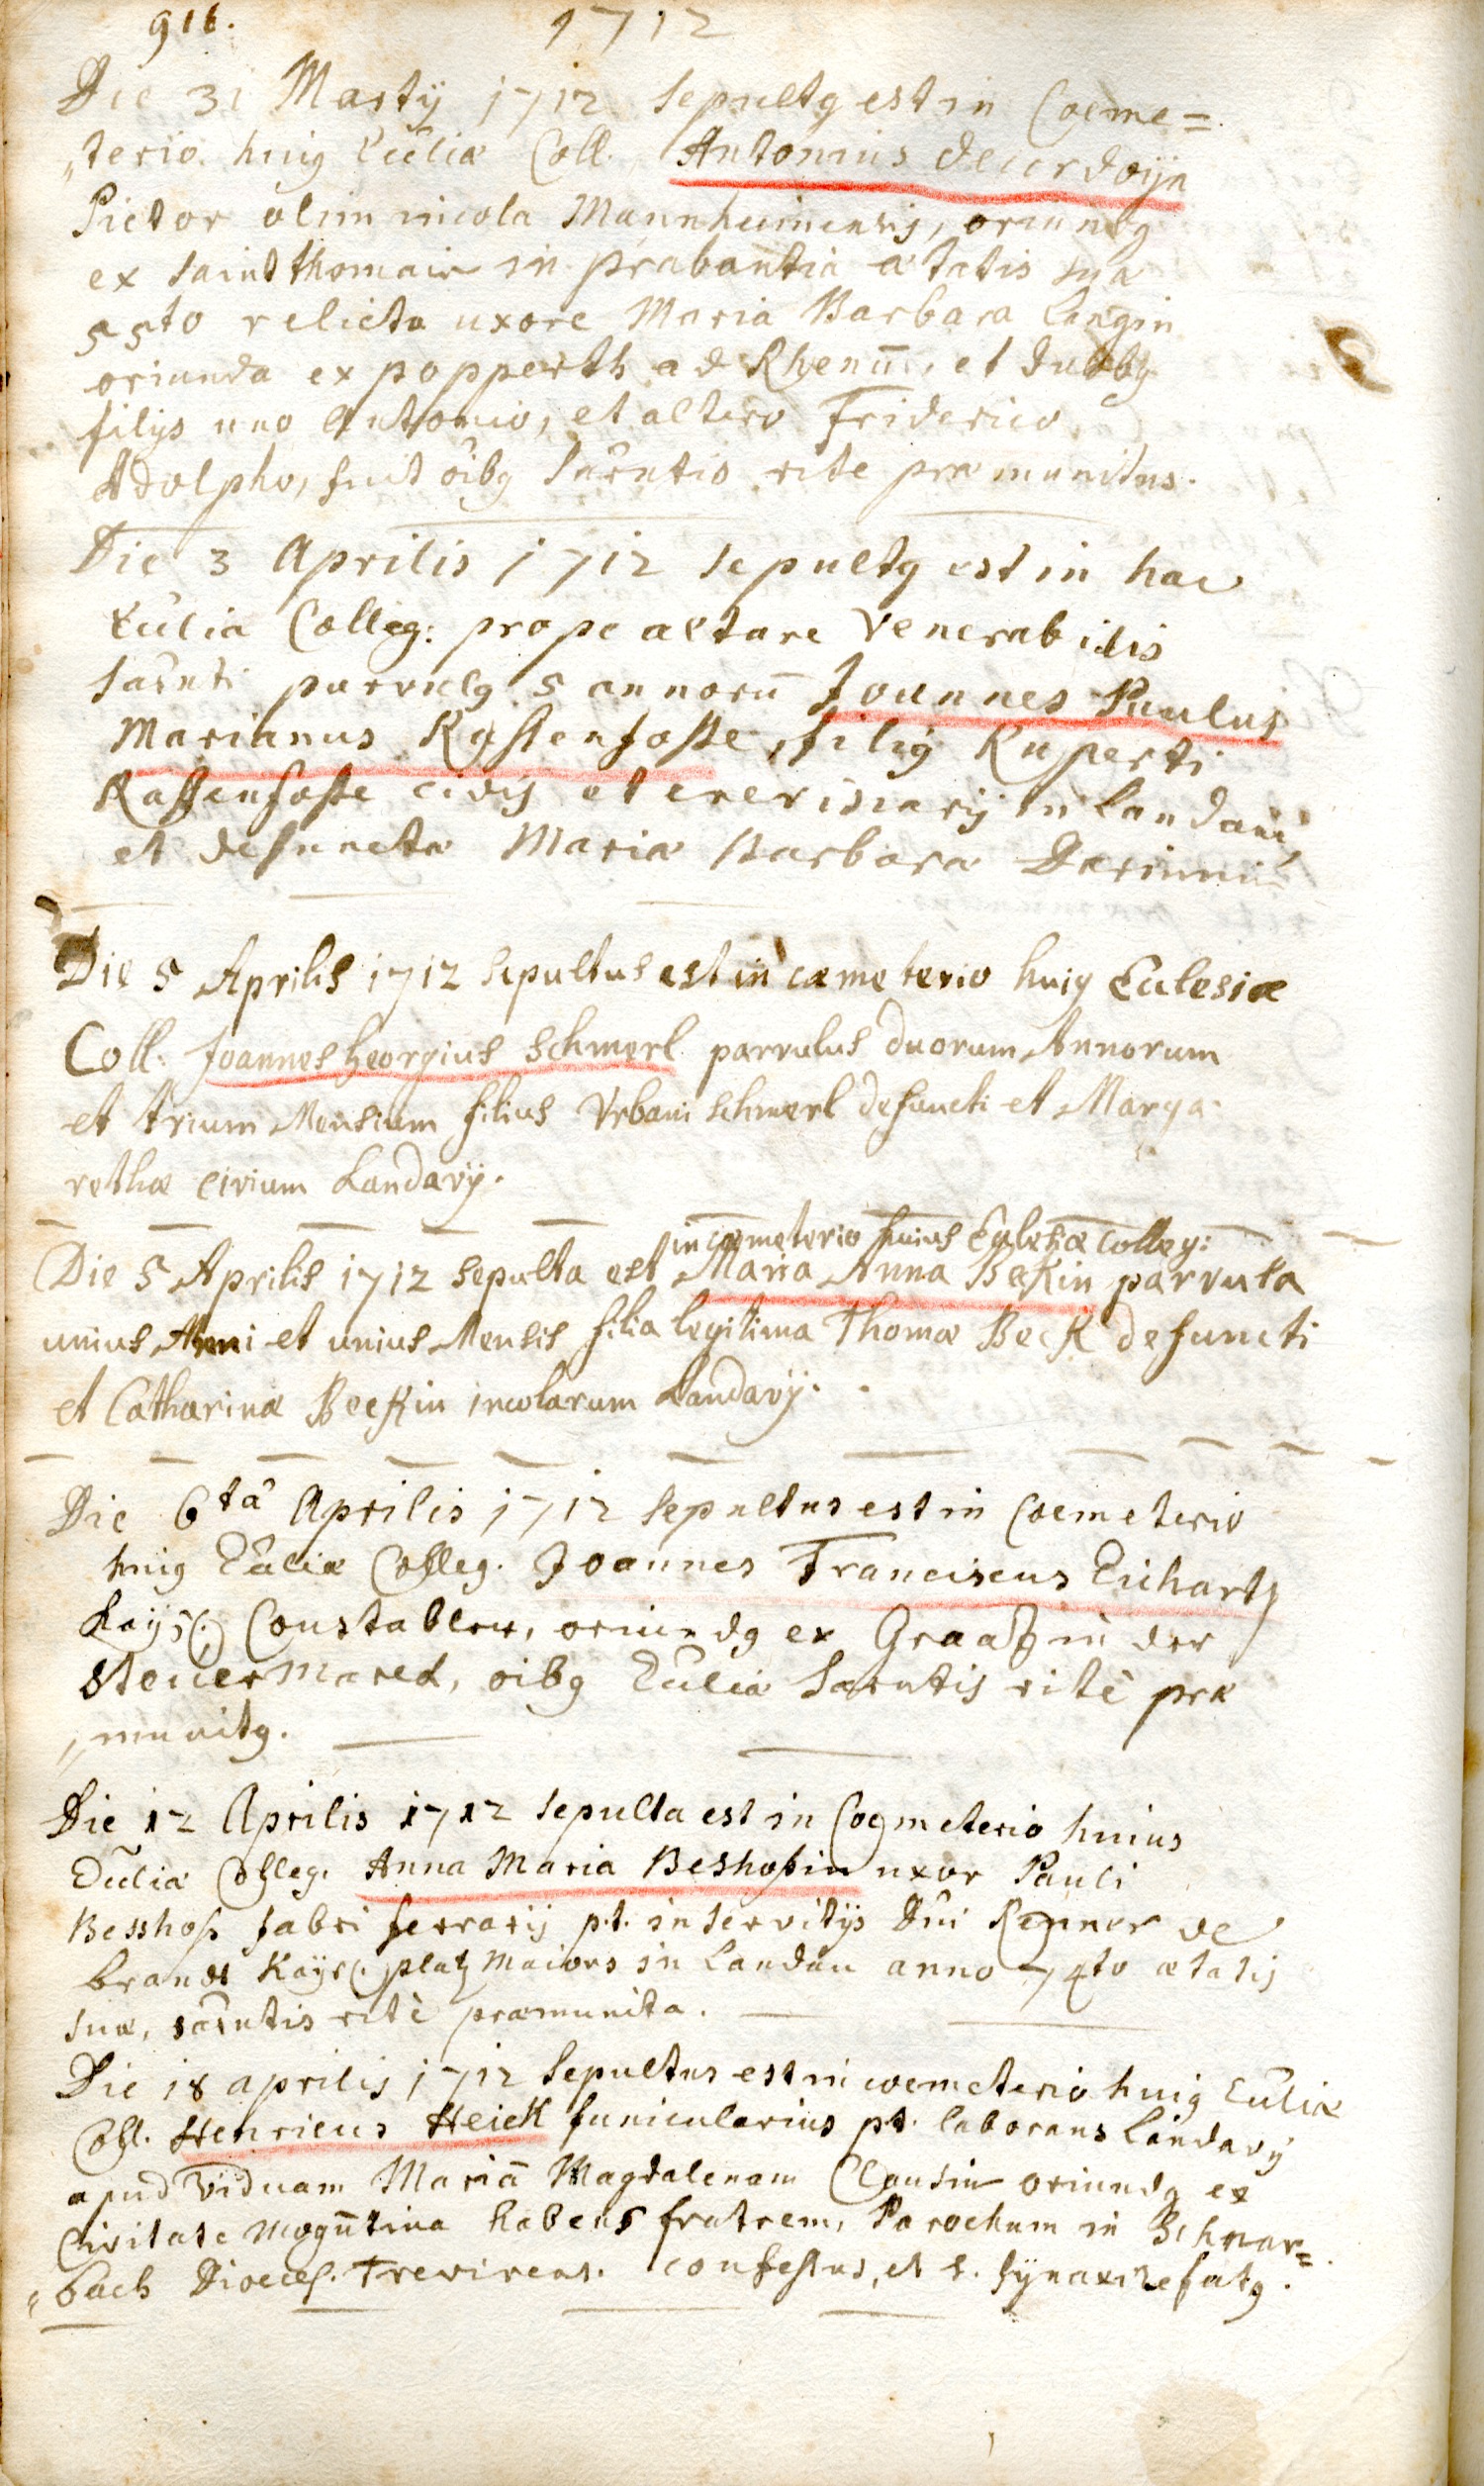 916.
1712
Die 31 Martÿ 1712 sepultq est in Coeme=
„terio huiq Ecclîæ Coll. Antonius decordoija
Pictor olim incola Mannheimensis, oriundq
ex saint thomair in prabantia ætatis suæ
55to relicta uxore Maria Barbara Langin
oriunda ex popperth ad Rhenū, et duobq
filijs uno Antonio, et altero Friderico
Adolpho, fuit oîbq Sacrntis rite præmunitus.
Die 3 Aprilis 1712 sepultq est in hac
Ecclîa Colleg: prope altare Venerabilis
Sacrnti parvulq 5 annorū Joannes Paulus
Marianus Rassenfosse, filiq Ruperti
Rassenfosse civis et cerevisiarij in Landau,
et defunctæ Mariæ Barbaræ
Die 5 Aprilis 1712 sepultus est in cæmeterio huiq Ecclesiæ
Coll. Joannes Georgius Schmerl parvulus duorum Annorum
et trium Mensium filius Vrbani Schmerl defuncti et Marga
rethæ civium Landavÿ.
in cæmeterio huius Ecclesiæ Colleg:
Die 5 Aprilis 1712 sepulta est Maria Anna Bekin parvula
unius Anni et unius Mensis filia legitima Thomæ Beck defuncti
et Catharinæ Beckin incolarum Landavÿ.
Die 6tâ Aprilis 1712 sepultus est in Coemeterio
huiq Ecclîæ Colleg. Joannes Franciscus Eichartz
Kaijs. Constabler, oriundq ex Graatz in der
Steuermarck, oîbq Ecclîæ Sacrntis ritè præ
„munitq.
Die 12 Aprilis 1712 sepulta est in Coemeterio huius
Ecclîæ Colleg. Anna Maria Beshoffin uxor Pauli
Besshoff fabri ferrarij p.t. in servitijs Dni Renner de
brandt Kaijs. platz Maiors in Landau anno 74to ætatis
suæ, sacrntis ritè præmunita.
Die 18 aprilis 1712 sepultus est in coemeterio huiq Ecclîæ
Coll. Henricus Heick funicularius p.t. laborans Landavÿ
apud Viduam Mariā Magdalenam Clausin oriundq ex
Civitate Mogūtina habens fratrem, Parochum in Schwar=
„bach Dioeces. Trevirens. confessus, et s. synaxi refectq.